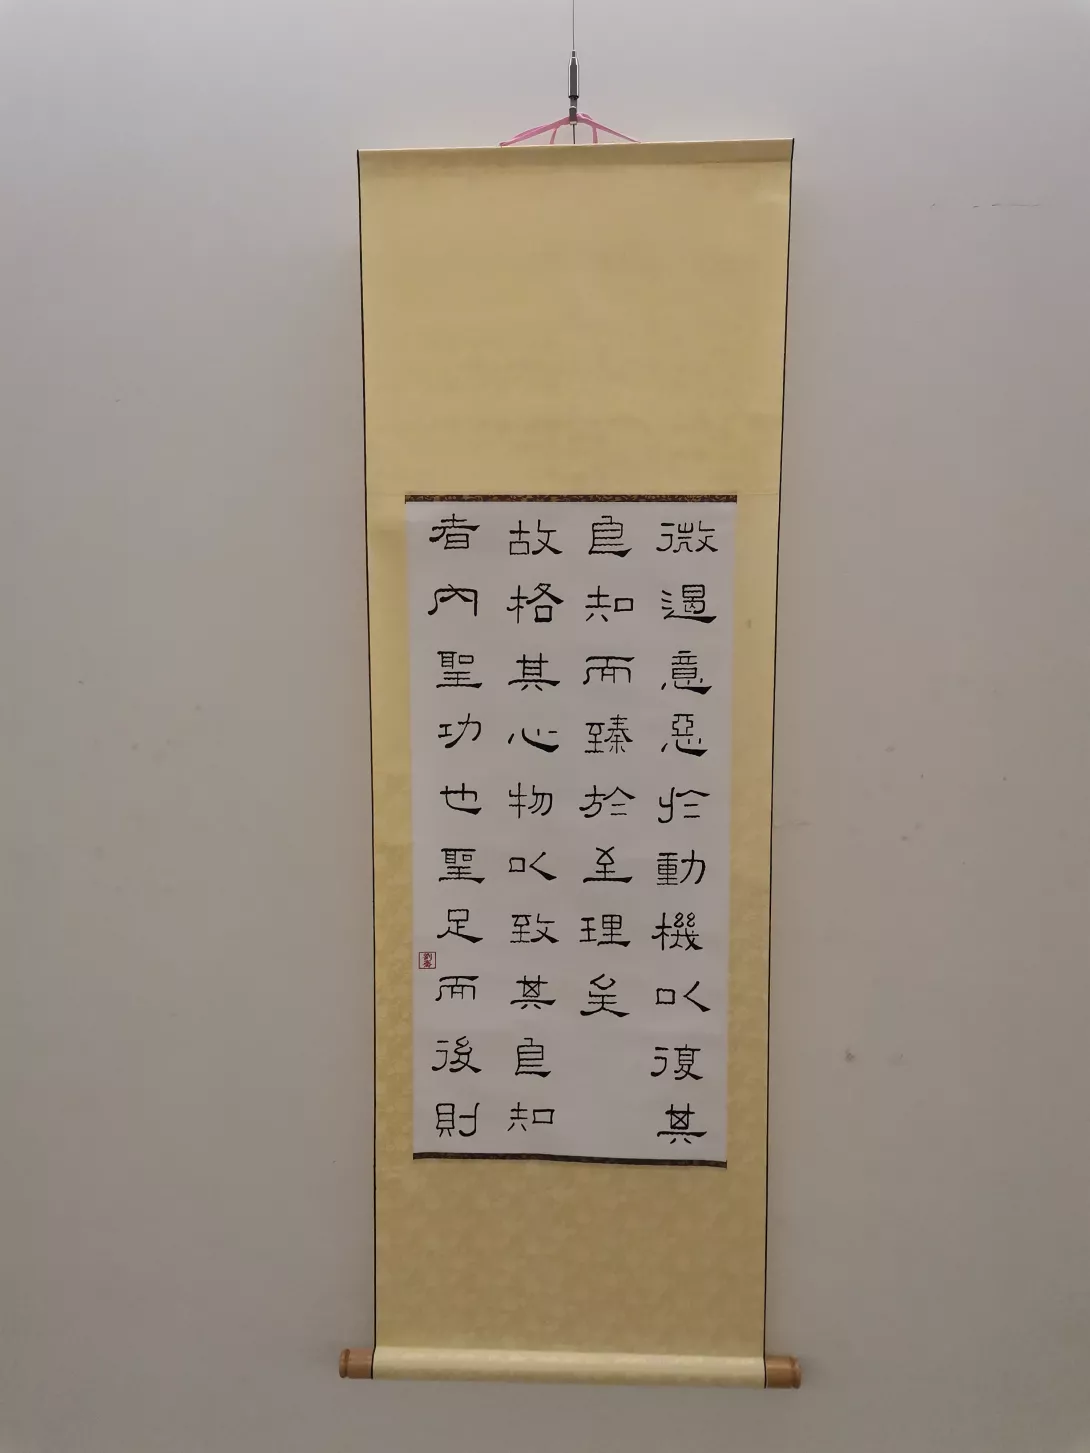 微遏意惡於動機以復其
良知而臻於至理矣
故格其心物以致其良知
者內聖功也聖足而後則